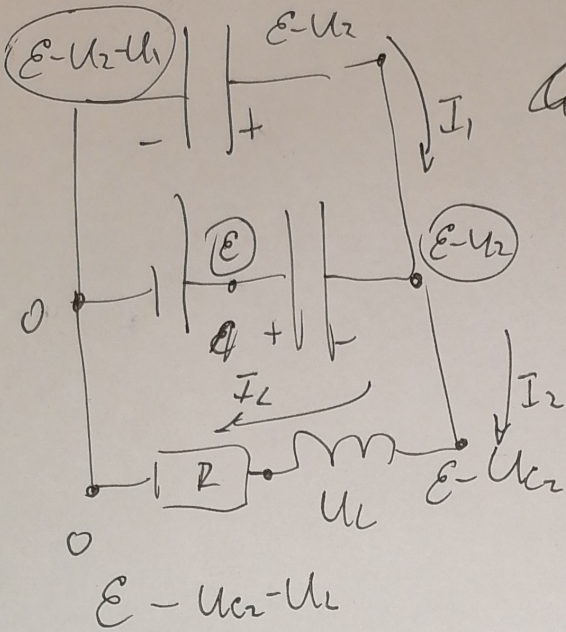 ε-U₂-U₁
ε-U₂
- +
I₁
ε
ε-U₂
0
+ -
I_L
I₂
R
U_L
ε-U_C₂
0
ε-U_C₂-U_L